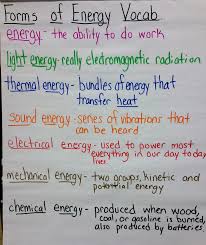 Forms of Energy Vocab
energy - the ability to do work
light energy - really electromagnetic radiation
thermal energy - bundles of energy that
transfer heat
sound energy - series of vibrations that
can be heard
electrical energy - used to power most
everything in our day today
lives.
mechanical energy - two groups, kinetic and
potential energy
chemical energy - produced when wood,
coal, or gasoline is burned,
also produced by batteries.